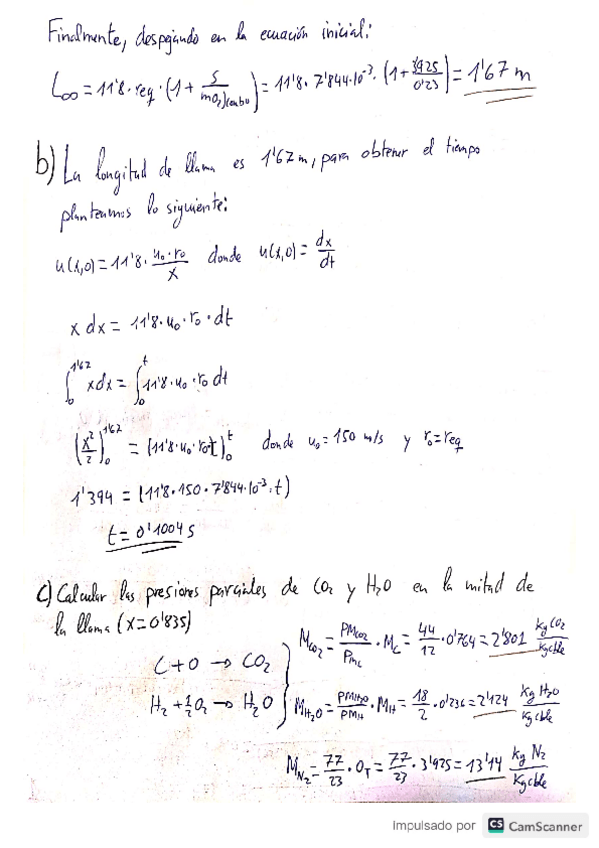 Finalmente, despejando en la ecuación inicial:
L∞ = 11'8 · req · (1 + S / mO2)combu) = 11'8 · 7'844·10⁻³ · (1 + 3'925 / 0'23) = 1'67 m
b) La longitud de llama es 1'67 m, para obtener el tiempo
planteamos lo siguiente:
u(x,0) = 11'8 · u₀·r₀ / x donde u(x,0) = dx / dt
x dx = 11'8 · u₀ · r₀ · dt
∫₀^1'67 x dx = ∫₀^t 11'8 · u₀ · r₀ dt
(x² / 2)₀^1'67 = (11'8 · u₀ · r₀ t)₀^t donde u₀ = 150 m/s y r₀ = req
1'394 = (11'8 · 150 · 7'844·10⁻³ · t)
t = 0'1004 s
c) Calcular las presiones parciales de CO2 y H2O en la mitad de
la llama (x = 0'835)
C + O → CO2
H2 + 1/2 O2 → H2O
MCO2 = PMCO2 / PMC · MC = 44 / 12 · 0'764 = 2'801 kg CO2 / kg cble
MH2O = PMH2O / PMH · MH = 18 / 2 · 0'236 = 2'124 kg H2O / kg cble
MN2 = 77 / 23 · OT = 77 / 23 · 3'925 = 13'14 kg N2 / kg cble
Impulsado por CS CamScanner